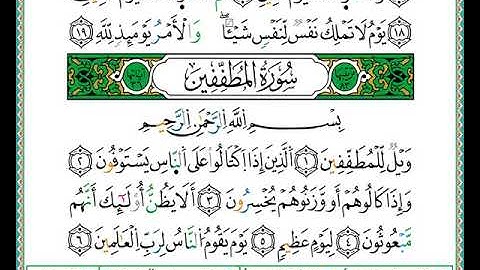 ١٨ يَوْمَ لَا تَمْلِكُ نَفْسٌ لِّنَفْسٍ شَيْـًٔا ۖ وَالْأَمْرُ يَوْمَئِذٍ لِّلَّهِ ١٩
سُورَةُ الْمُطَفِّفِينَ
بِسْمِ اللَّهِ الرَّحْمَٰنِ الرَّحِيمِ
وَيْلٌ لِّلْمُطَفِّفِينَ ١ الَّذِينَ إِذَا اكْتَالُوا عَلَى النَّاسِ يَسْتَوْفُونَ ٢
وَإِذَا كَالُوهُمْ أَو وَّزَنُوهُمْ يُخْسِرُونَ ٣ أَلَا يَظُنُّ أُولَٰئِكَ أَنَّهُم
مَّبْعُوثُونَ ٤ لِيَوْمٍ عَظِيمٍ ٥ يَوْمَ يَقُومُ النَّاسُ لِرَبِّ الْعَالَمِينَ ٦